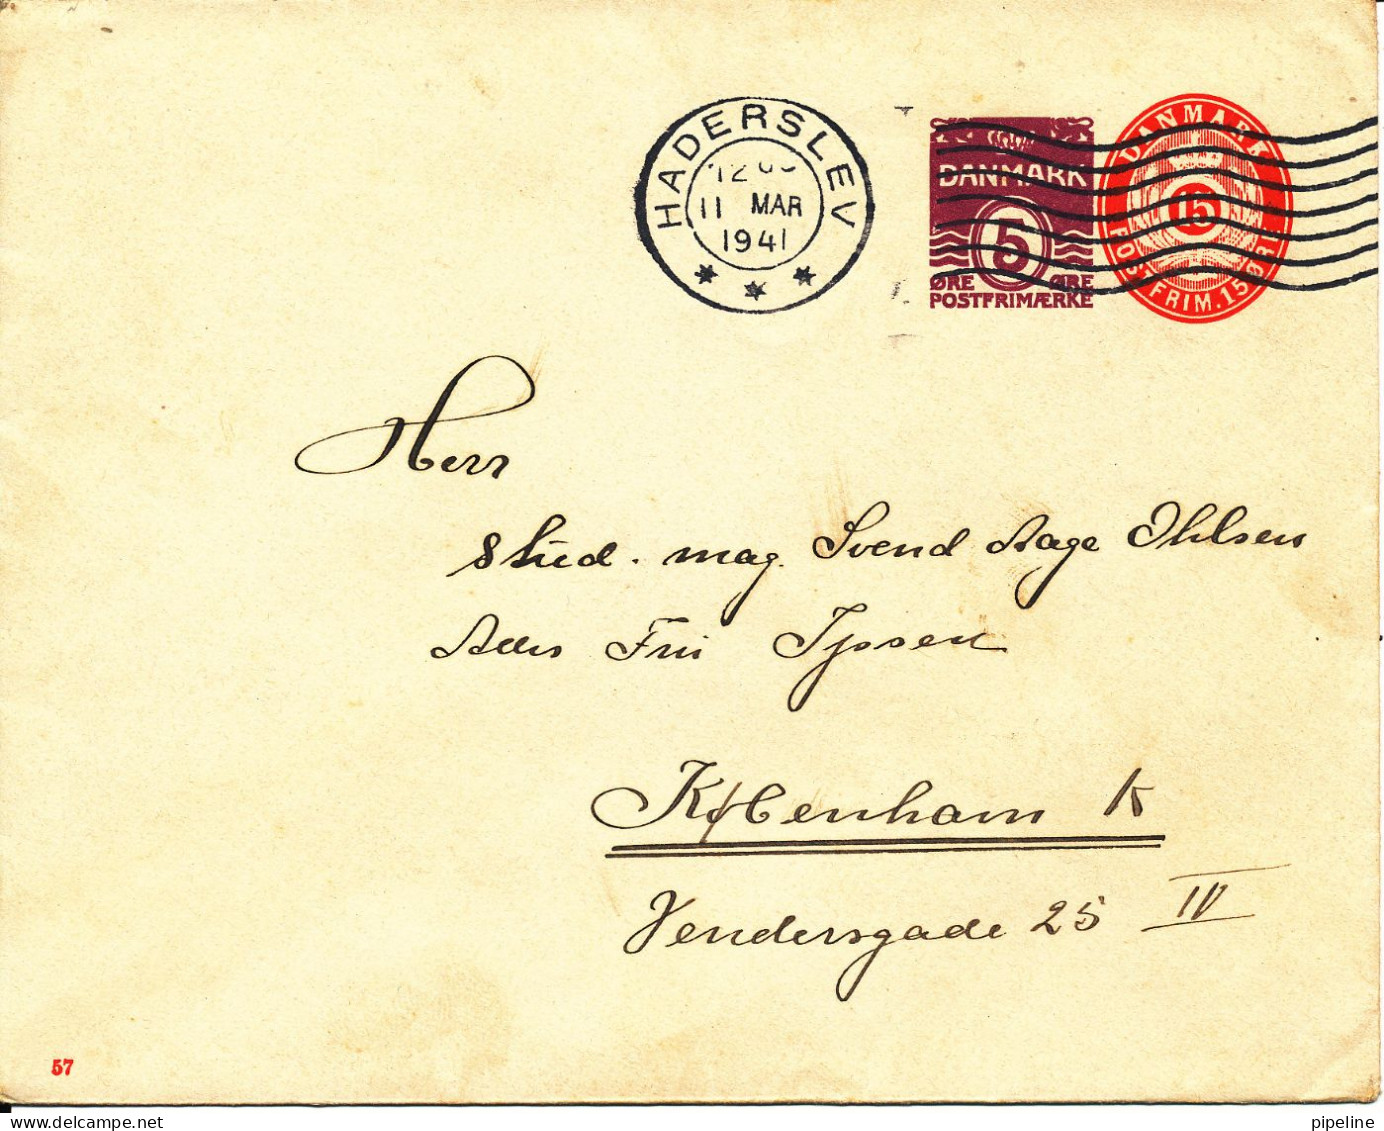 HADERSLEV
11 MAR
1941
DANMARK
5
ØRE ØRE
POSTFRIMÆRKE
DANMARK
15
POSTFRIM. 15 ØR
Herr
stud. mag. Svend Aage Ihlsen
Adrs Fru Ipsen
København K
Vendersgade 25 IV
57
pipeline